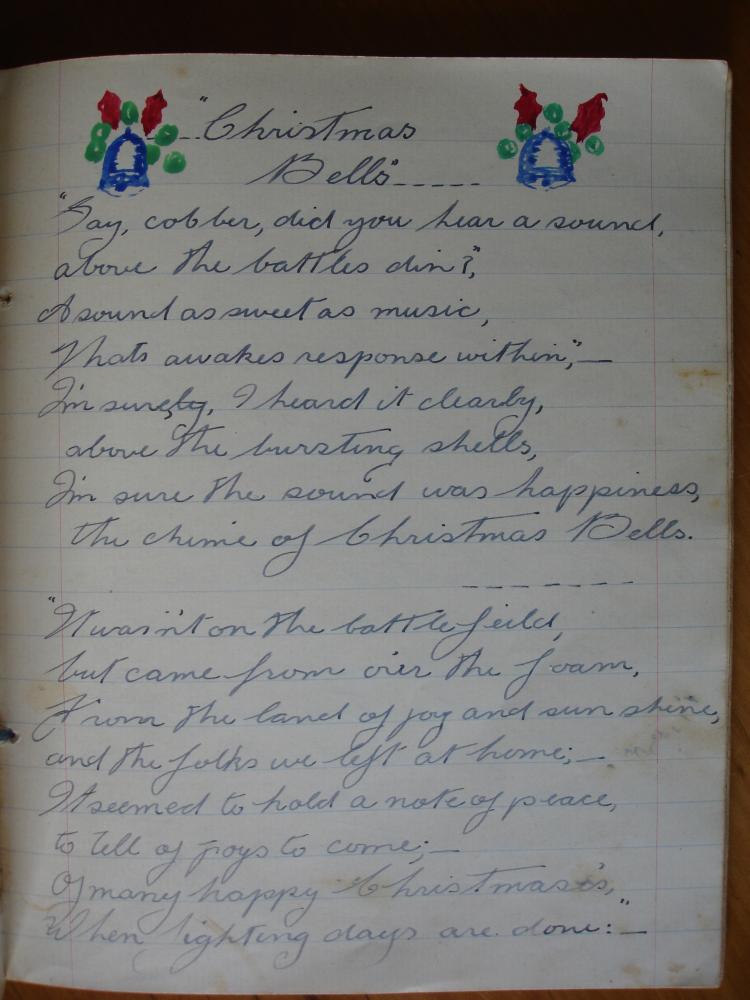 "Christmas
Bells"-----
"Say, cobber, did you hear a sound,
above the battles din?",
A sound as sweet as music,
Thats awakes response within",—
I'm surely, I heard it clearly,
above the bursting shells,
I'm sure the sound was happiness,
the chime of Christmas Bells.
-------
"It was'nt on the battle-feild,
but came from o'er the foam,
From the land of joy and sun shine,
and the folks we left at home;—
It seemed to hold a note of peace,
to tell of joys to come;—
Of many happy Christmas's,
When fighting days are done:"—